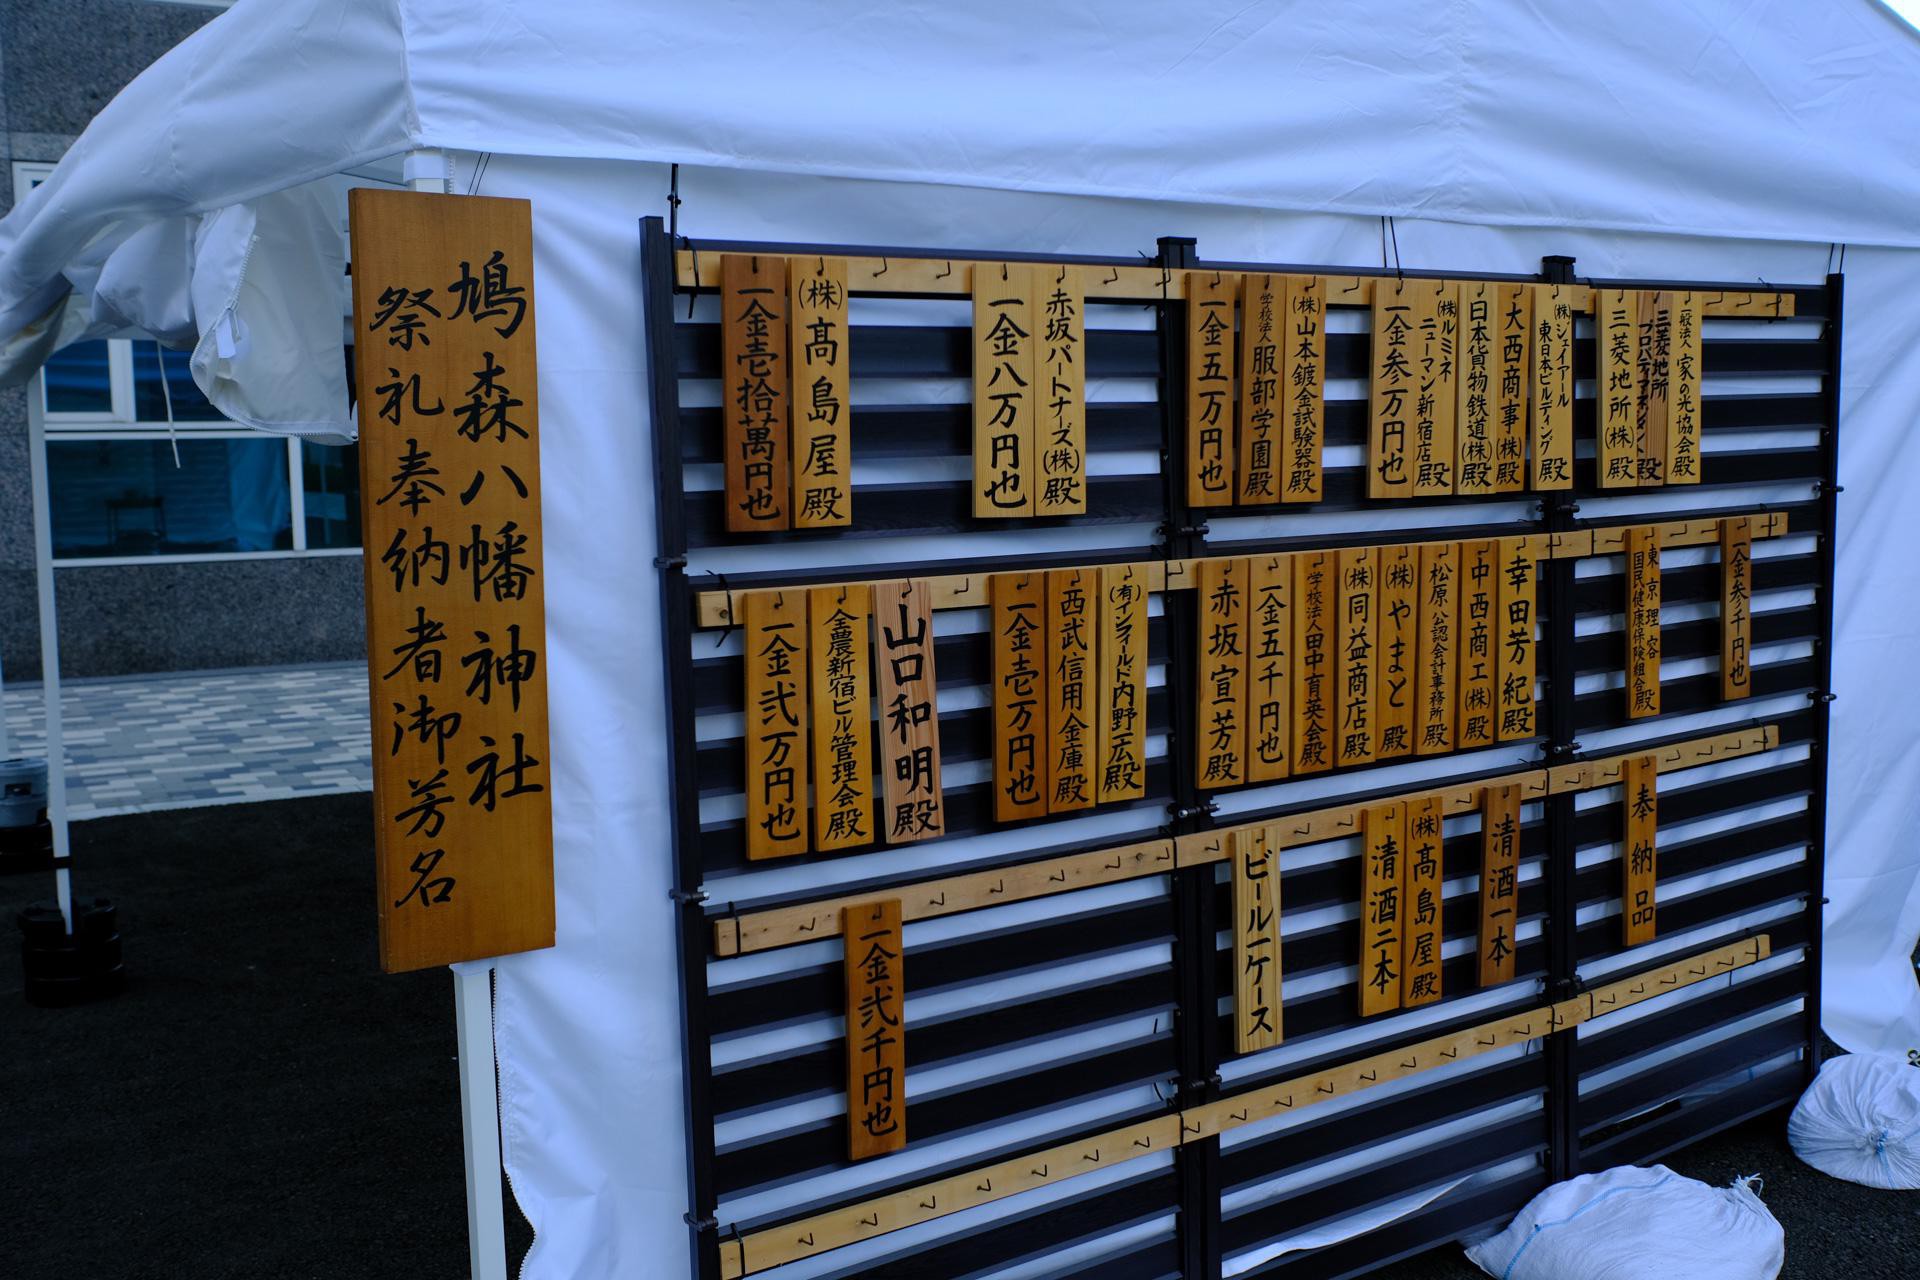 鳩森八幡神社
祭礼奉納者御芳名
一金壱拾萬円也
(株)髙島屋殿
一金八万円也
赤坂パートナーズ(株)殿
一金五万円也
学校法人服部学園殿
(株)山本鍍金試験器殿
一金参万円也
(株)ルミネ
ニューマン新宿店殿
日本貨物鉄道(株)殿
大西商事(株)殿
(株)ジェイアール
東日本ビルディング殿
三菱地所(株)殿
三菱地所
殿
一般法人家の光協会殿
一金弐万円也
全農新宿ビル管理会殿
山口和明殿
一金壱万円也
西武信用金庫殿
(有)インフィールド内野一広殿
赤坂宣芳殿
一金五千円也
学校法人田中育英会殿
(株)同益商店殿
(株)やまと殿
松原公認会計事務所殿
中西商工(株)殿
幸田芳紀殿
東京理容
国民健康保険組合殿
一金参千円也
一金弐千円也
ビール一ケース
清酒二本
(株)髙島屋殿
清酒一本
奉納品